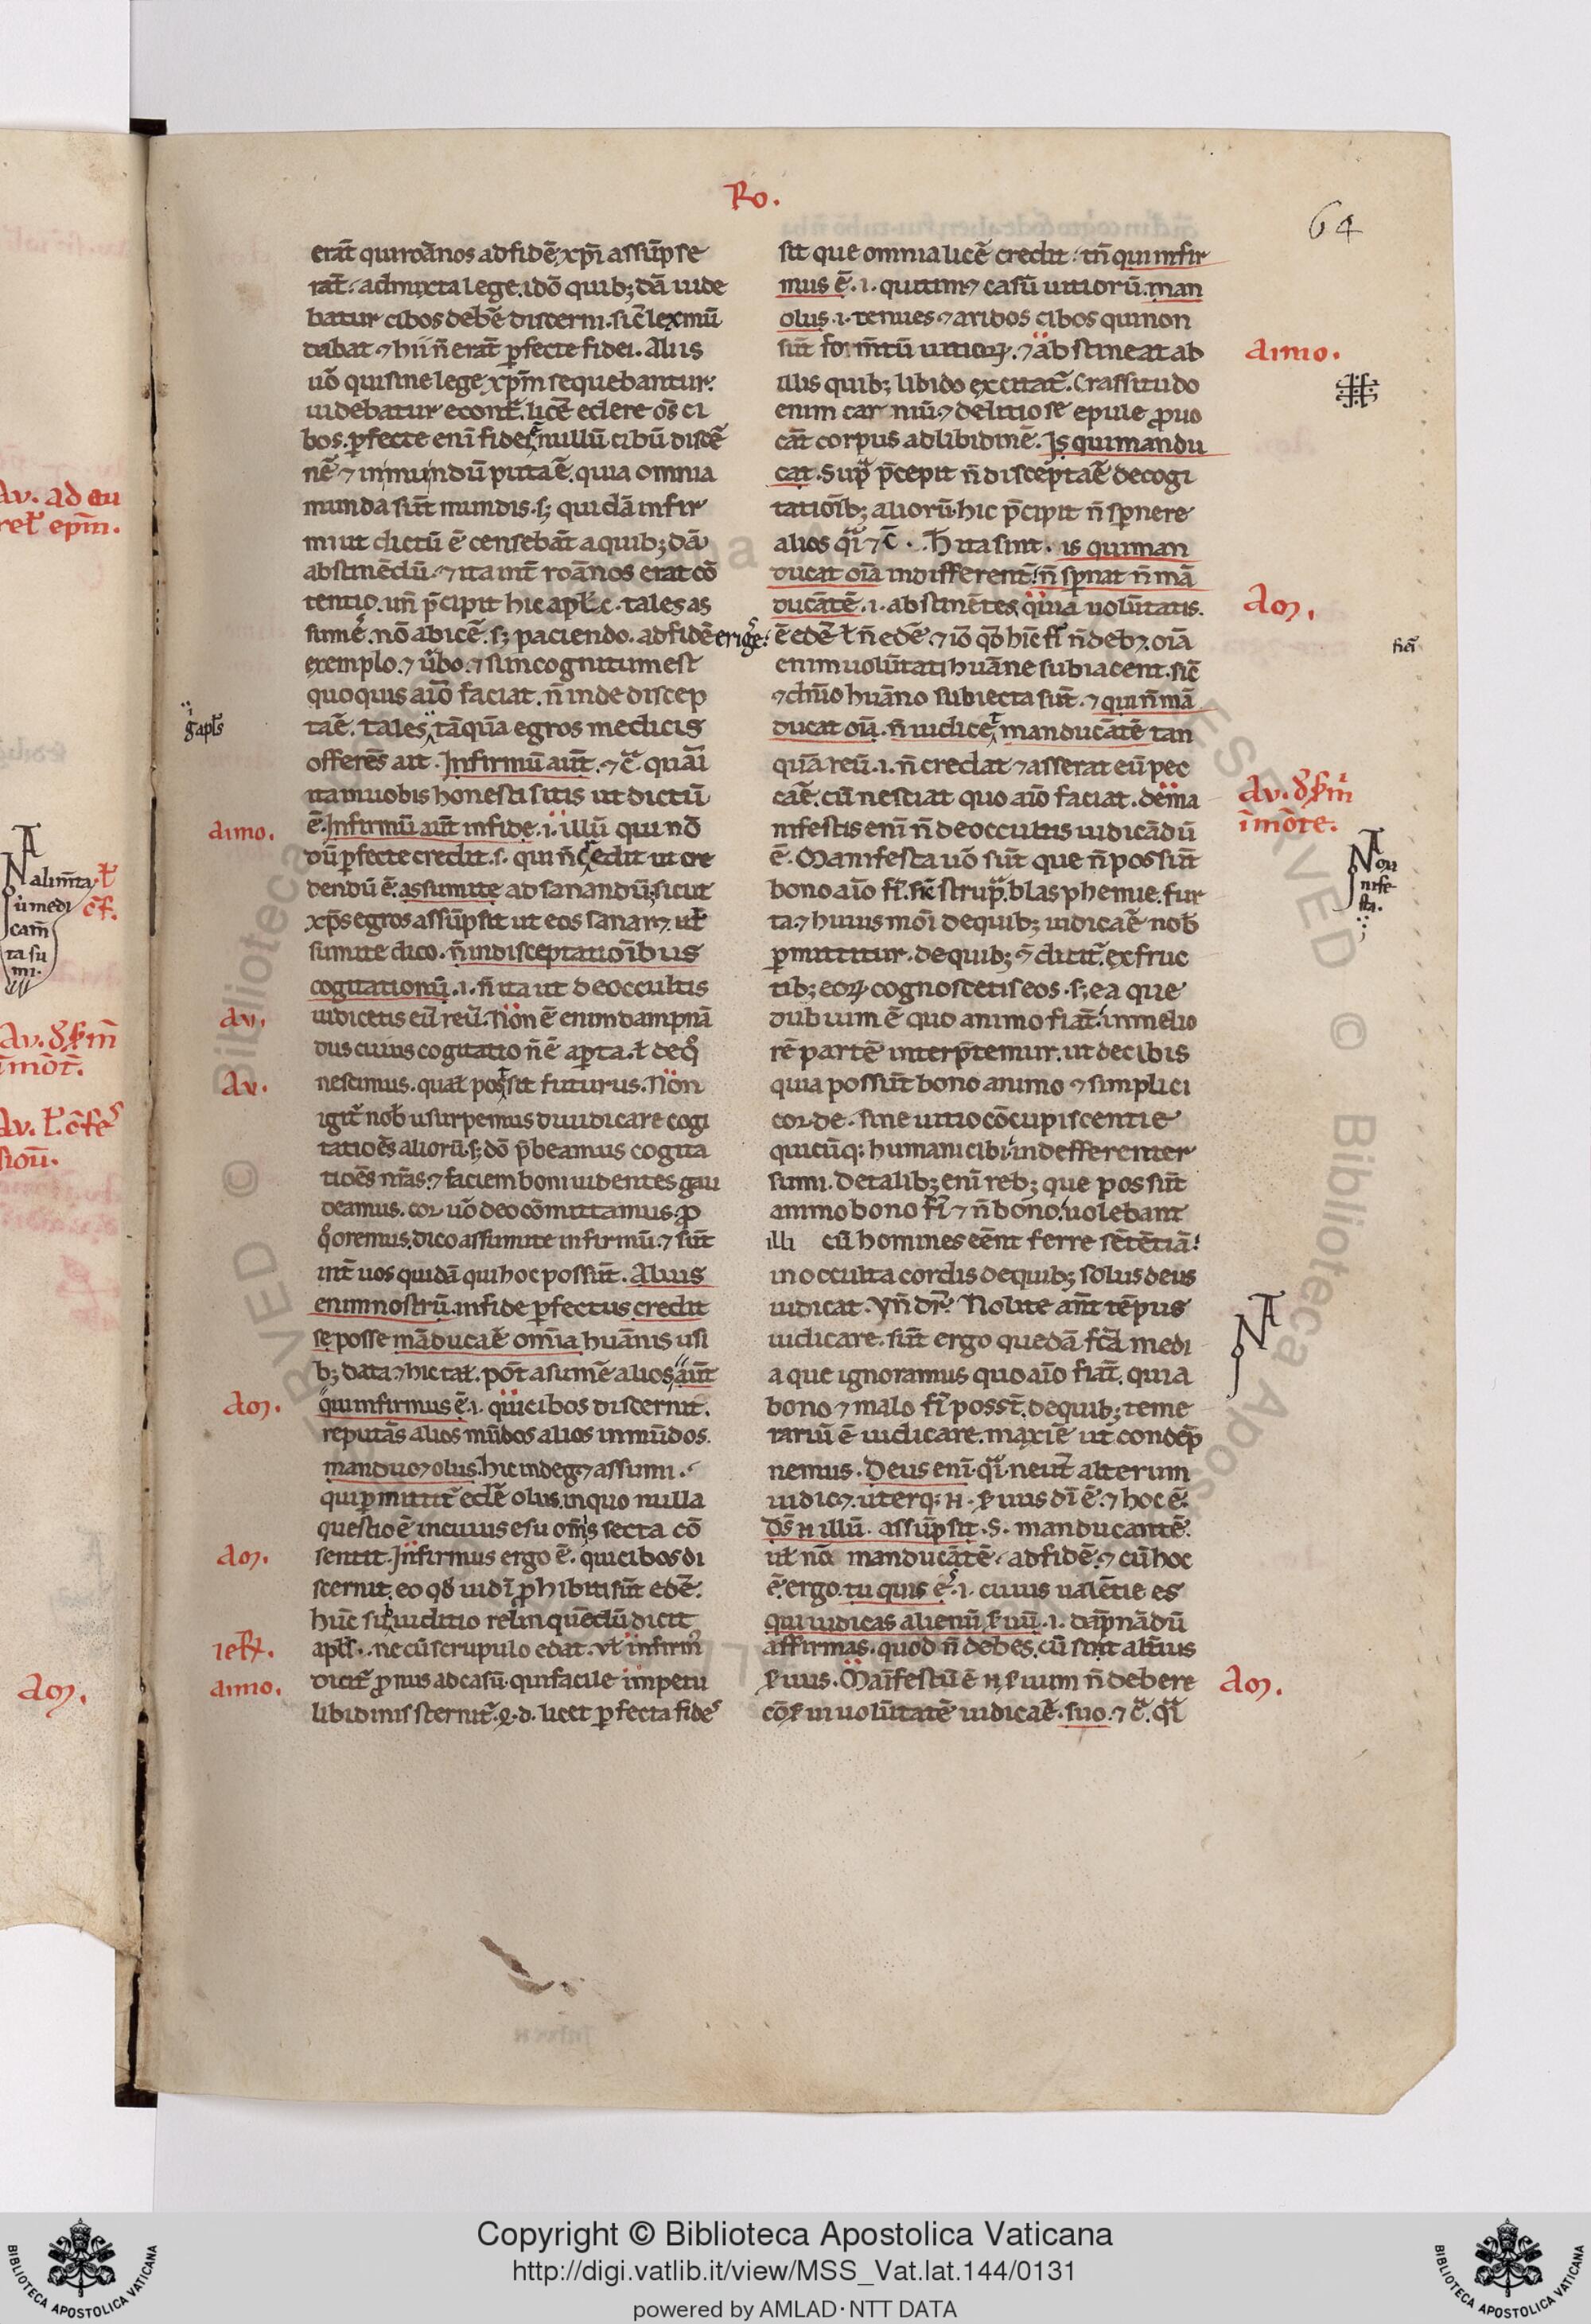 Ro.
64
erāt qui roānos ad fidē xp̄i assūpse
rāt. admixta lege. idō quib; dā uide
batur cibos debē discerni. sic̄ lex mū
dabat ⁊ hii n̄ erāt p̄fecte fidei. Aliis
uō qui sine lege xp̄m sequebantur.
uidebatur econt̄. licē edere os̄ ci
bos. p̄fecte eni fidei nullū cibū discē
nē ⁊ inmundū putaē. quia omnia
munda sūt mundis. s; quidā infir
mi ut dictū ē censebāt a quib; dā
abstinēdū. ⁊ ita int̄ roānos erat cō
tentio. un̄ p̄cipit hic apl̄'c. tales as
sumē. nō abicē. s; paciendo. ad fidē erigē.
exemplo. ⁊ ūbo. ⁊ si incognitum est
quo quis aīo faciat. n̄ inde discep
taē. tales tāquā egros medicis
offerēs ait. Infirmū aūt. ⁊ c̄. quāi
ita in uobis honesti sitis ut dictū
ē. Infirmū aūt in fide. i. illū qui nō
dū p̄fecte credit. s. qui n̄ credit ut cre
dendū ē. assumite ad sanandū. sicut
xp̄s egros assūpsit ut eos sanar⁊. ul̄
sumite dico. n̄ in disceptatioībus
cogitationū. i. n̄ ita ut de occultis
iudicetis eū reū. Non ē enim dampnā
dus cuius cogitatio n̄ ē ap̄ta. l̄ de q°
nescimus. qual̄ post sit futurus. Non
igit̄ nob̄ usurpemus diiudicare cogi
tatioēs aliorū. s; dō p̄beamus cogita
tioēs nr̄as. ⁊ faciem boni uidentes gau
deamus. cor uō deo cōmittamus. p̄
q° oremus. dico assumite infirmū. ⁊ sūt
int̄ uos quidā qui hoc possūt. Alius
enim nostrū. in fide p̄fectus credit
se posse māducaē omīa huānis usi
b; data. ⁊ hic tal̄. pōt a sumē alios. aūt
qui infirmus ē. i. qui cibos discernit.
reputās alios mūdos alios inmūdos.
manduc⁊ olus. hic indeg⁊ assumi.
qui p̄mittit̄ edē olus. in quo nulla
questio ē in cuius esu om̄is secta cō
sentit. Infirmus ergo ē. qui cibos di
scernit. eo qd̄ iudī p̄hibiti sūt edē.
hūc sui iuditio relinquēdū dicit
apl̄s. ne cū scrupulo edat. ul̄ infirm̄
dicit̄ p̄nus ad casū. qui facile impetu
libidinis sternit̄. q. d. licet p̄fecta fides
sit que omnia licē credit. tn̄ qui infir
mus ē. i. qui tim⁊ casū uitiorū. man
olus. i. tenues ⁊ aridos cibos qui non
sūt fom̄tū uitioꝝ. ⁊ abstineat ab
illis quib; libido excitat̄. Crassitudo
enim carniū. ⁊ delitiose epule p̄uo
cāt corpus ad libidinē. Is qui mandu
cat. Supᵃ p̄cepit n̄ disceptaē de cogi
tatioīb; aliorū. hic p̄cipit n̄ sp̄nere
alios qāi ⁊ c̄. h̄ ita sunt. is qui man
ducat oīa indifferent̄. n̄ sp̄nat n̄ mā
ducātē. i. abstinētes. quia uolūtatis.
ē edē l̄ n̄ edē. ⁊ iō qō hīc fī n̄ deb⁊. oīa
enim uolūtati huāne subiacent. sic̄
⁊ dn̄io huāno subiecta sūt. ⁊ qui n̄ mā
ducat oīa. n̄ iudicet manducātē tan
quā reū. i. n̄ credat ⁊ asserat eū pec
caē. cū nesciat quo aīo faciat. de ma
nifestis enī n̄ de occultis iudicādū
ē. Manifesta uō sūt que n̄ possūt
bono aīo fī. sic̄ strupᵃ. blasphemie. fur
ta. ⁊ huius moī de quib; iudicaē nob̄
p̄mittitur. de quib; ⁊ dicit̄. ex fruc
tib; eoꝝ cognoscetis eos. s; ea que
dubium ē quo animo fiāt. in melio
rē partē interp̄temur. ut de cibis
quia possūt bono animo ⁊ simplici
corde. sine uitio cōcupiscentie
quicūq; humani cibi. indefferenter
sumi. De talib; enī reb; que possūt
animo bono fī ⁊ n̄ bono. uolebant
illi cū homines eēnt ferre sētētiā.
in occulta cordis de quib; solus deus
iudicat. Vn̄ dr̄. Nolite an̄ tēpus
iudicare. sūt ergo quedā fc̄a medi
a que ignoramus quo aīo fiāt. quia
bono ⁊ malo fī posst̄. de quib; teme
rariū ē iudicare. maxīe ut condēp
nemus. Deus enī. qāi. neut̄ alterum
iudic⁊. uterq; n. s̄uus dī ē. ⁊ hoc ē.
Ds̄ n illū. assūpsit. s. manducantē.
ul̄ nō manducātē. ad fidē. ⁊ cū hoc
ē. ergo. tu quis es. i. cuius ualētie es
qui iudicas alienū s̄uū. i. dāpnādū
affirmas. quod n̄ debes. cū sint alt̄ius
s̄uus. Manifestū ē n. s̄uum n̄ debere
cōs̄ui uolūtatē iudicaē. suo. ⁊ c̄. qāi
aimo.
Av.
Av.
Am.
Am.
aimo.
aimo.
Am.
Av. d̄ s̄m
ī mōte.
Non
nife
sta.
Am.
Av. ad au
Am.
Copyright © Biblioteca Apostolica Vaticana
http://digi.vatlib.it/view/MSS_Vat.lat.144/0131
powered by AMLAD·NTT DATA
BIBLIOTECA APOSTOLICA VATICANA
BIBLIOTECA APOSTOLICA VATICANA